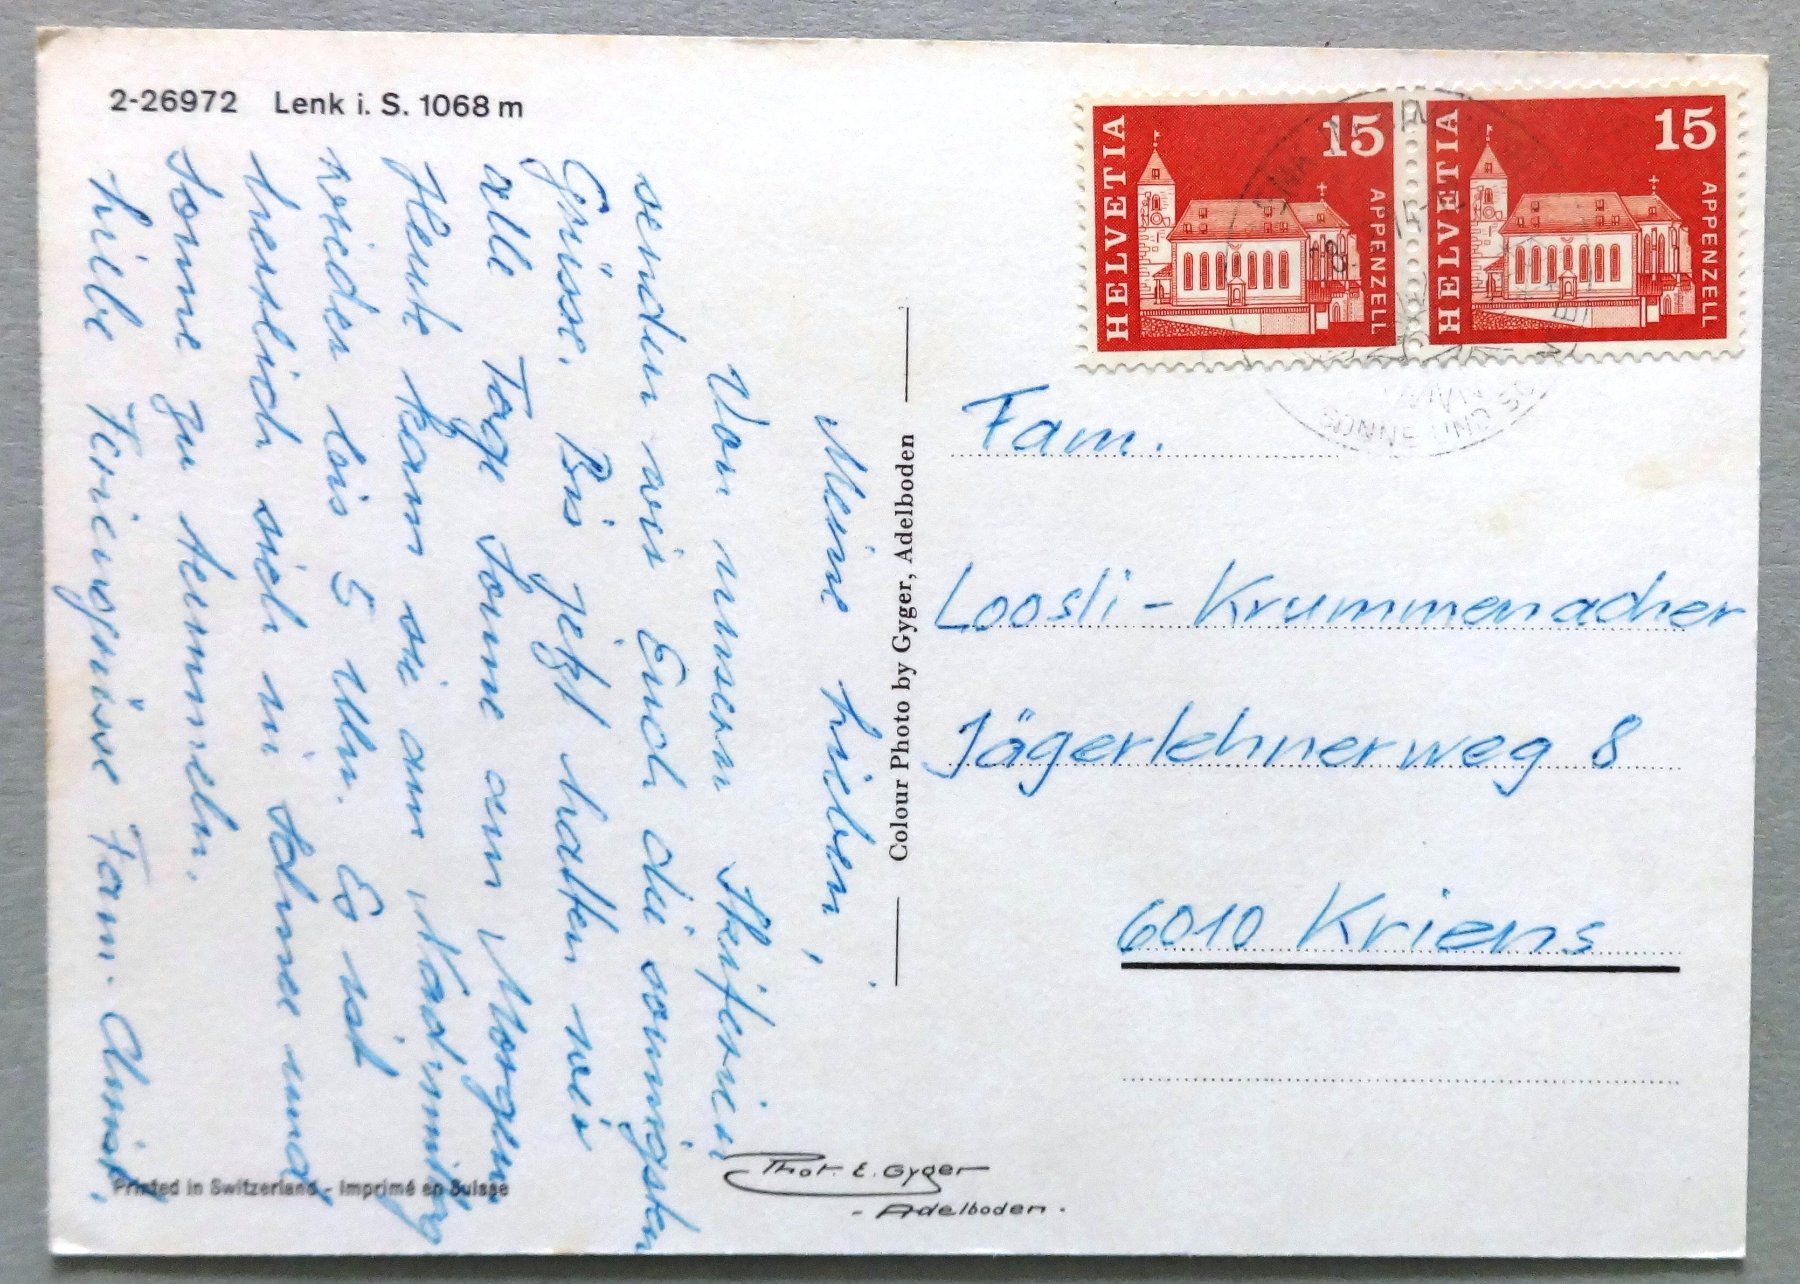 2-26972 Lenk i. S. 1068 m
HELVETIA
15
APPENZELL
HELVETIA
15
APPENZELL
SONNE UND
Meine Lieben,
Von unsern Skiferien
senden wir Euch die sonnigsten
Grüsse. Bis jetzt hatten wir
alle Tage Sonne am Morgen
Heute kam sie am Nachmittag
wieder bis 5 Uhr. Es ist
herrlich sich in Schnee und
Sonne zu tummeln.
Liebe Feriengrüsse Fam.
Colour Photo by Gyger, Adelboden
Fam.
Loosli-Krummenacher
Jägerlehnerweg 8
6010 Kriens
Phot. E. Gyger
- Adelboden -
Printed in Switzerland - Imprimé en Suisse